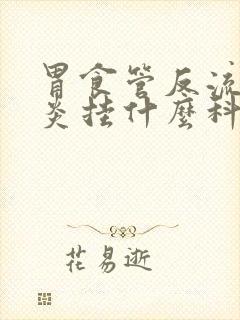 胃食管反流
炎挂什麼科
花易逝